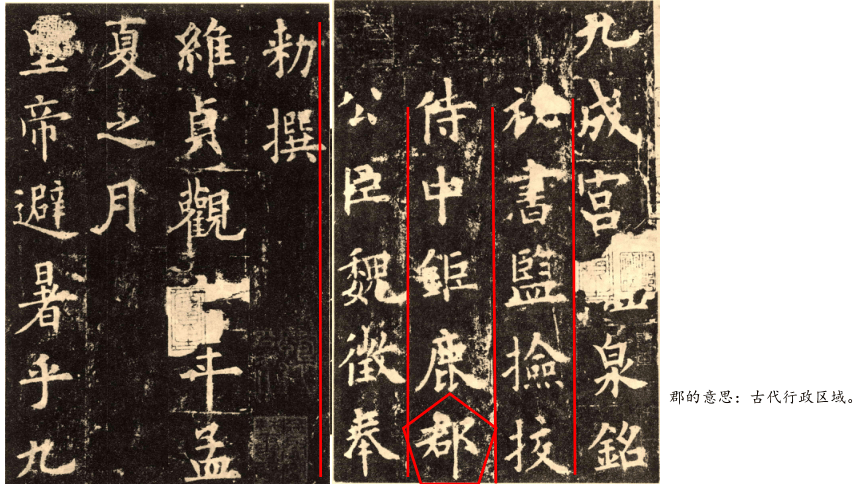 九成宮醴泉銘
祕書監撿挍
侍中鉅鹿郡
公臣魏徵奉
勑撰
維貞觀六年孟
夏之月
皇帝避暑乎九
郡的意思：古代行政区域。